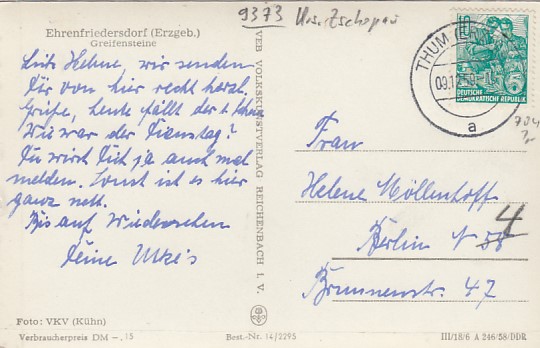 9373
Ehrenfriedersdorf (Erzgeb.)
Greifensteine
Liebe Helene, wir senden
Dir von hier recht herzl.
Grüße, heute fällt der 1. Schnee
Wie war der Dienstag?
Du wirst Dich ja auch mal
melden. Sonst ist es hier
ganz nett.
Bis auf Wiedersehen
Deine
Foto: VKV (Kühn)
Verbraucherpreis DM -,15
Best.-Nr. 14/2295
VEB VOLKSKUNSTVERLAG REICHENBACH I. V.
THUM
a
10
5
DEUTSCHE
DEMOKRATISCHE REPUBLIK
Frau
Helene Möllenhoff
Berlin N 58 4
Brunnenstr. 47
III/18/6 A 246/58/DDR